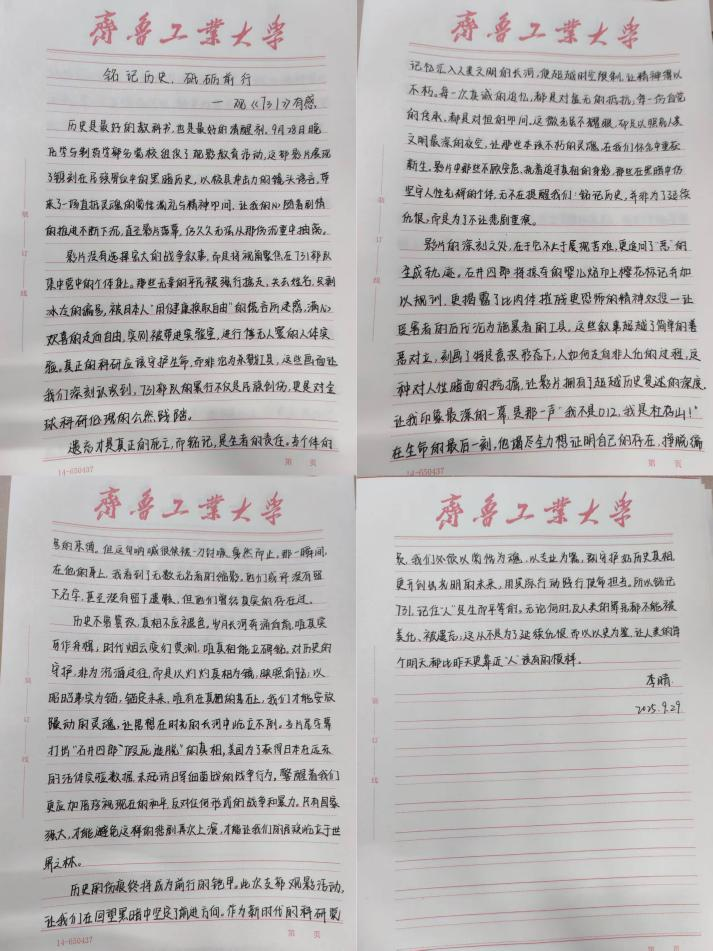 齊魯工業大學
铭记历史，砥砺前行
— 观《731》有感
历史是最好的教科书，也是最好的清醒剂。9月28日晚
化学与制药学部分党校组织了观影教育活动，这部影片展现
了镌刻在民族骨血中的黑暗历史，以极具冲击力的镜头语言，带
来了一场直抵灵魂的警性洗礼与精神叩问，让我的心随着剧情
的推进不断下沉，直至影片落幕，仍久久无法从那份沉重中抽离。
影片没有选择宏大的战争叙事，而是将视角聚焦在731部队
集中营中的个体身上。那些无辜的平民被强行掳走，失去姓名，只剩
冰冷的编号，被日本人“用健康换取自由”的谎言所迷惑，满心
欢喜的走向自由，实则被带进实验室，进行惨无人寰的人体实
验。真正的科研应该守护生命，而非沦为杀戮工具，这些画面让
我们深刻认识到，731部队的暴行不仅是民族创伤，更是对全
球科研伦理的公然践踏。
遗忘才是真正的死亡，而铭记，是生者的责任。当个体的
14-650437
第 页
装
订
线
齊魯工業大學
记忆汇入人类文明的长河，便超越时空限制，让精神得以
不朽。每一次真诚的追忆，都是对虚无的抵抗，每一份自觉
的传承，都是对恒的叩问。这微光虽不耀眼，却足以照亮人类
文明最深的夜空，让那些本该不朽的灵魂，在我们怀念中重获
新生。影片中那些不顾安危、执着追寻真相的身影，那些在黑暗中仍
坚守人性光辉的个体，无不在提醒我们：铭记历史，并非为了延续
仇恨，而是为了不让悲剧重演。
影片的深刻之处，在于它不止于展现苦难，更追问了“恶”的
生成轨迹。石井四郎将掠夺的婴儿烙印上樱花标记并加
以规训，更揭露了比肉体摧残更恐怖的精神奴役—让
受害者的后代沦为施暴者的工具，这些叙事超越了简单的善
恶对立，刻画了特定意识形态下，人如何走向非人化的过程，这
种对人性暗面的挖掘，让影片拥有了超越历史复述的深度。
让我印象最深的一幕，是那一声“我不是012，我是杜存山！”
在生命的最后一刻，他竭尽全力想证明自己的存在，挣脱编
14-650437
第 页
装
订
线
齊魯工業大學
号的束缚。但这句呐喊很快被一刀封喉，戛然而止。那一瞬间，
在他的身上，我看到了无数无名者的缩影。他们或许没有留
下名字，甚至没有留下遗骸，但他们曾经真实的存在过。
历史不容篡改，真相不应褪色。岁月长河奔涌向前，唯真实
可作舟楫，时代烟云变幻莫测，唯真相能立碑铭。对历史的
守护，非为沉湎过往，而是以灼灼真相为镜，映照前路；以
昭昭事实为锚，锚定未来，唯有在真相的基石上，我们才能安放
躁动的灵魂，让思想在时光的长河中屹立不倒。当片尾字幕
打出“石井四郎”假死逃脱”的真相，美国为了获得日本在远东
的活体实验数据，未起诉日军细菌战的战争行为，警醒着我们
更应加倍珍视现在的和平，反对任何形式的战争和暴力。只有国家
强大，才能避免这样的悲剧再次上演，才能让我们的民族屹立于世
界之林。
历史的伤痕终将成为前行的铠甲。此次支部观影活动，
让我们在回望黑暗中坚定了前进方向。作为新时代的科研党
14-650437
第 页
装
订
线
齊魯工業大學
员，我们必须以警惕为魂，以专业为盾，既守护好历史真相，
更开创出光明的未来，用实际行动践行使命担当。所以铭记
731，记住“人”是生而平等的。无论何时，反人类的罪恶都不能被
美化、被遗忘，这从不是为了延续仇恨，而以以史为鉴，让人类的每
个明天都比昨天更靠近“人”该有的模样。
李晴.
2025.9.29
装
订
线